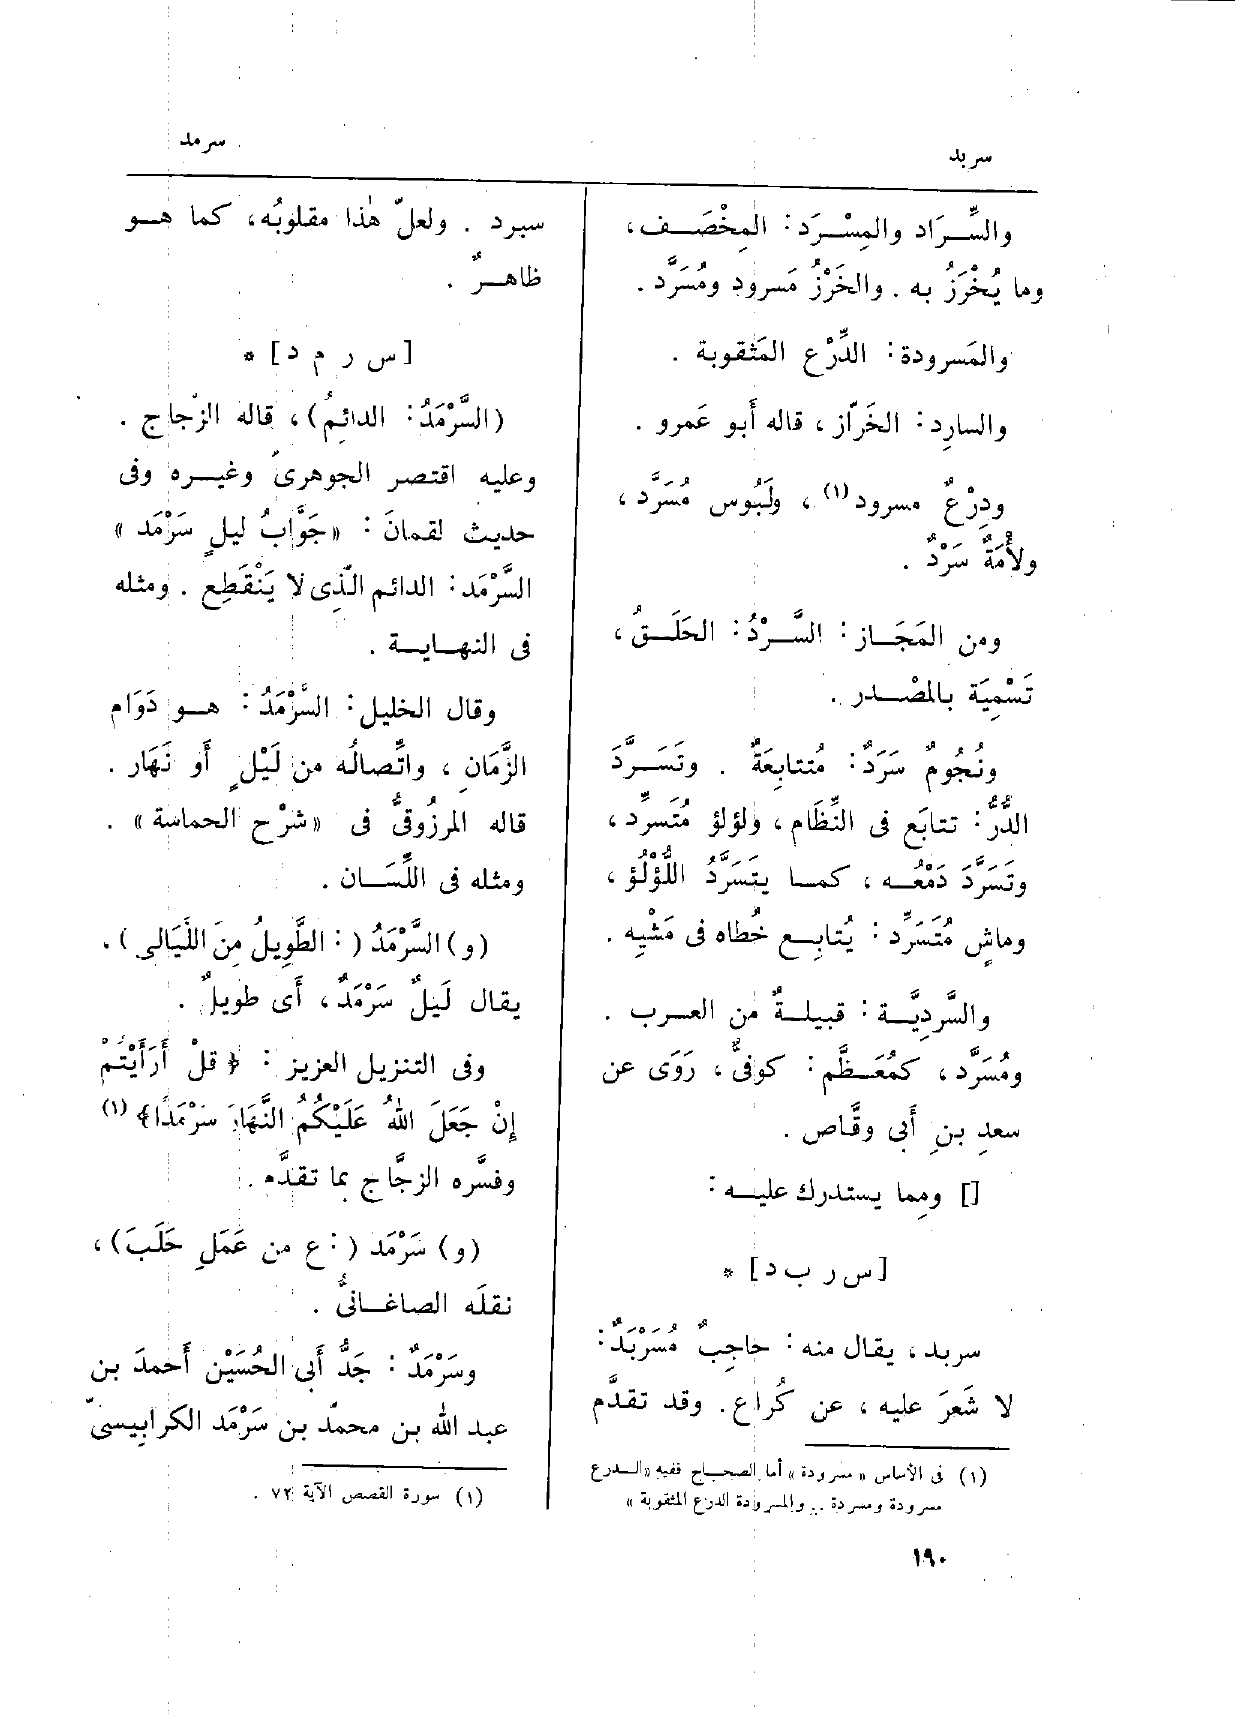 سربد
سرمد
والسِّـرَاد والمِسْـرَد: المِخْصَـف،
وما يُخْرَزُ به . والخَرْزُ مَسرود ومُسَرَّد .
والمَسرودة: الدِّرْع المَثقوبة .
والسارِد: الخَرّاز ، قاله أَبو عَمرو .
ودِرْعٌ مسرود(١) ، ولَبُوس مُسَرَّد ،
ولأْمَةٌ سَرْدٌ .
ومن المَجَـاز : السَّـرْدُ: الحَلَـقُ ،
تَسْمِيَة بالمصْـدر .
ونُجُومٌ سَرَدٌ: مُتتابِعَةٌ . وتَسَـرَّدَ
الدُّرُّ: تتابَع فى النِّظَام ، ولؤلؤ مُتَسرِّد ،
وتَسَرَّدَ دَمْعُـه ، كمـا يتَسَرَّدُ اللُّؤْلُؤ ،
وماشٍ مُتَسَرِّد : يُتابِـع خُطاه فى مَشْيِه .
والسَّرديَّـة : قبيلـةٌ من العـرب .
ومُسَرَّد ، كمُعَـظَّم : كوفىٌّ ، رَوَى عن
سعدِ بنِ أَبى وقَّاص .
[] ومما يستدرك عليـه :
[س ر ب د] *
سربد ، يقال منه : حاجِبٌ مُسَرْبَدٌ :
لا شَعرَ عليه ، عن كُراع . وقد تقدَّم
(١) فى الأساس «مسرودة» أما الصحـاح ففيه «الـدرع
مسرودة ومسردة .. والمسرودة الدرع المثقوبة»
سبرد . ولعلّ هٰذا مقلوبُه، كما هـو
ظاهـرٌ .
[س ر م د] *
(السَّرْمَدُ: الدائمُ) ، قاله الزّجاج .
وعليه اقتصر الجوهرىّ وغيـره وفى
حديث لقمانَ : «جَوَّابُ ليلٍ سَرْمَد»
السَّرْمَد: الدائم الّذِى لا يَنْقَطِع . ومثله
فى النهـايـة .
وقال الخليل: السَّرْمَدُ : هـو دَوَام
الزَّمَانِ ، واتِّصالُه من لَيْلٍ أَو نَهَار .
قاله المرزُوقىُّ فى «شَرْح الحماسة» .
ومثله فى اللِّسَـان .
(و) السَّرْمَدُ ( : الطَّوِيلُ مِنَ اللَّيَالى) .
يقال لَيلٌ سَرْمَدٌ ، أَى طويلٌ .
وفى التنزيل العزيز : ﴿ قلْ أَرَأَيْتُم
إِنْ جَعَلَ اللهُ عَلَيْكُمُ النَّهَارَ سَرْمَدًا﴾ (١)
وفسَّره الزجَّاج بما تقدَّم .
(و) سَرْمَد ( : ع من عَمَلِ حَلَبَ) ،
نقلَه الصاغـانىُّ .
وسَرْمَدٌ : جَدُّ أَبى الحُسَيْن أَحمدَ بن
عبد الله بن محمّد بن سَرْمَد الكرابِيسىّ
(١) سورة القصص الآية ٧٢ .
١٩٠